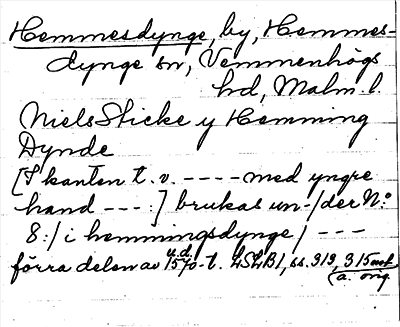 Hemmesdynge, by, Hemmes-
dynge sn, Vemmenhögs
hd, Malm. l.
Niels Sticke y Hemming
Dynde
[I kanten t. v. ---- med yngre
hand ---:] brukas un-/der N:o
8:/ i hemmingsdynge / ---
förra delen av u.d. 1570-t. LSLB1, ss. 313, 315
(a. orig.